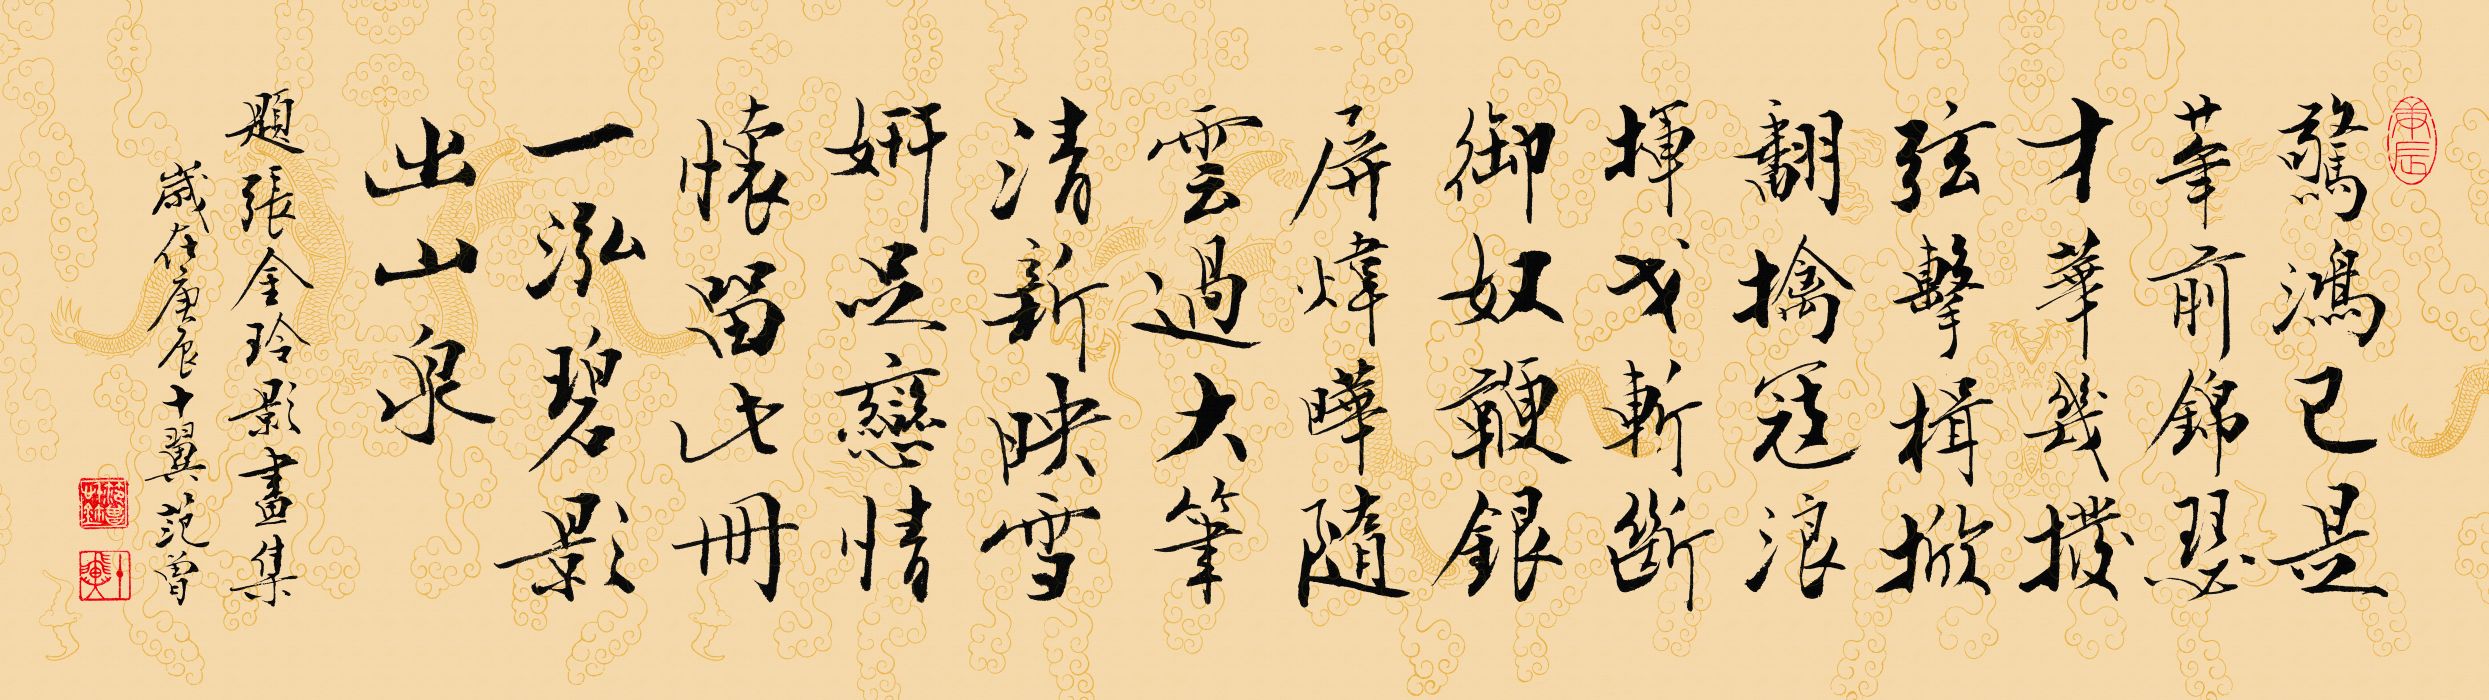 驚鴻已是
華前錦瑟
才華幾撥
弦擊楫掀
翻擒寇浪
揮戈斬斷
御奴鞭銀
屏煒曄隨
雲過大筆
清新映雪
妍足戀情
懷留此冊
一泓碧影
出山泉
題張金玲影畫集
歲在庚辰十翼范曾
庚辰